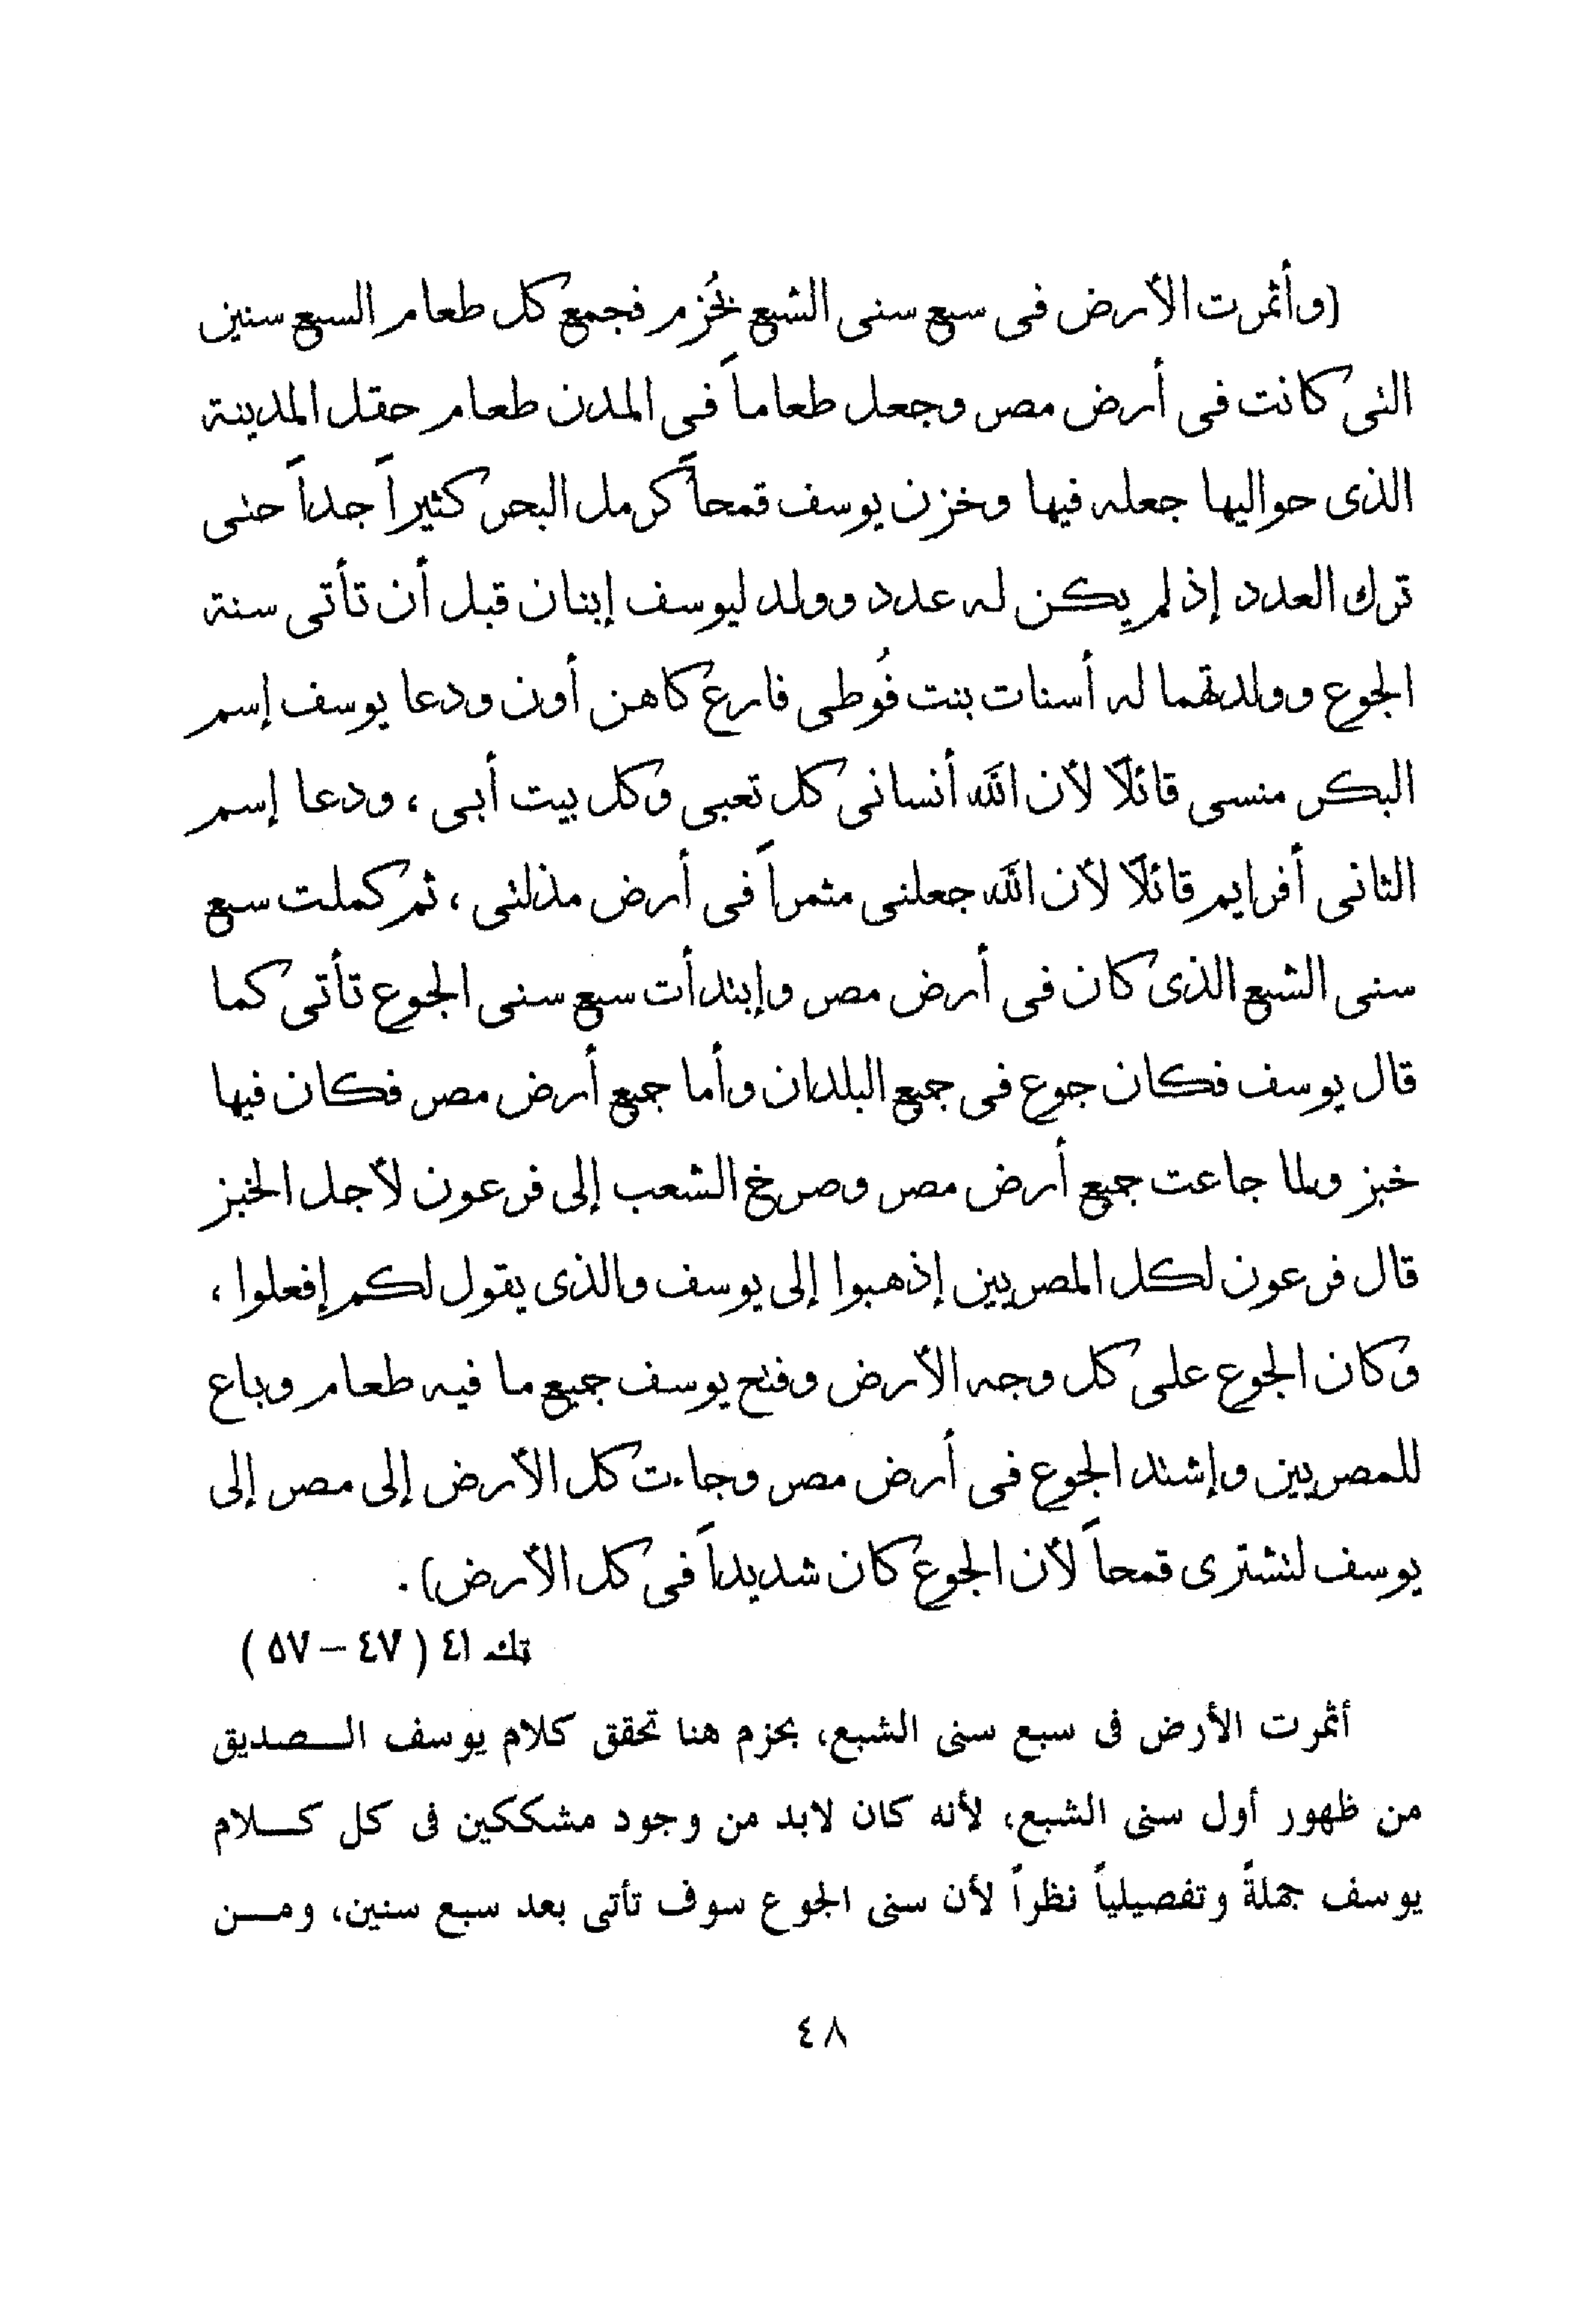 (وأثمرت الأرض فى سبع سنى الشبع بحُزم فجمع كل طعام السبع سنين
التى كانت فى أرض مصر وجعل طعاماً فى المدن طعام حقل المدينة
الذى حواليها جعله فيها وخزن يوسف قمحاً كرمل البحر كثيراً جداً حتى
ترك العدد إذ لم يكن له عدد وولد ليوسف إبنان قبل أن تأتى سنة
الجوع وولدتهما له أسنات بنت فُوطى فارع كاهن أون ودعا يوسف إسم
البكر منسى قائلاً لأن الله أنسانى كل تعبى وكل بيت أبى ، ودعا إسم
الثانى أفرايم قائلاً لأن الله جعلنى مثمراً فى أرض مذلتى ، ثم كملت سبع
سنى الشبع الذى كان فى أرض مصر وإبتدأت سبع سنى الجوع تأتى كما
قال يوسف فكان جوع فى جميع البلدان وأما جميع أرض مصر فكان فيها
خبز ولما جاعت جميع أرض مصر وصرخ الشعب إلى فرعون لأجل الخبز
قال فرعون لكل المصريين إذهبوا إلى يوسف والذى يقول لكم إفعلوا ،
وكان الجوع على كل وجه الأرض وفتح يوسف جميع ما فيه طعام وباع
للمصريين وإشتد الجوع فى أرض مصر وجاءت كل الأرض إلى مصر إلى
يوسف لتشترى قمحاً لأن الجوع كان شديداً فى كل الأرض) .
تك ٤١ ( ٤٧ – ٥٧ )
أثمرت الأرض فى سبع سنى الشبع، بحزم هنا تحقق كلام يوسف الـــصديق
من ظهور أول سنى الشبع، لأنه كان لابد من وجود مشككين فى كل كـــلام
يوسف جملةً وتفصيلياً نظراً لأن سنى الجوع سوف تأتى بعد سبع سنين، ومـــن
٤٨